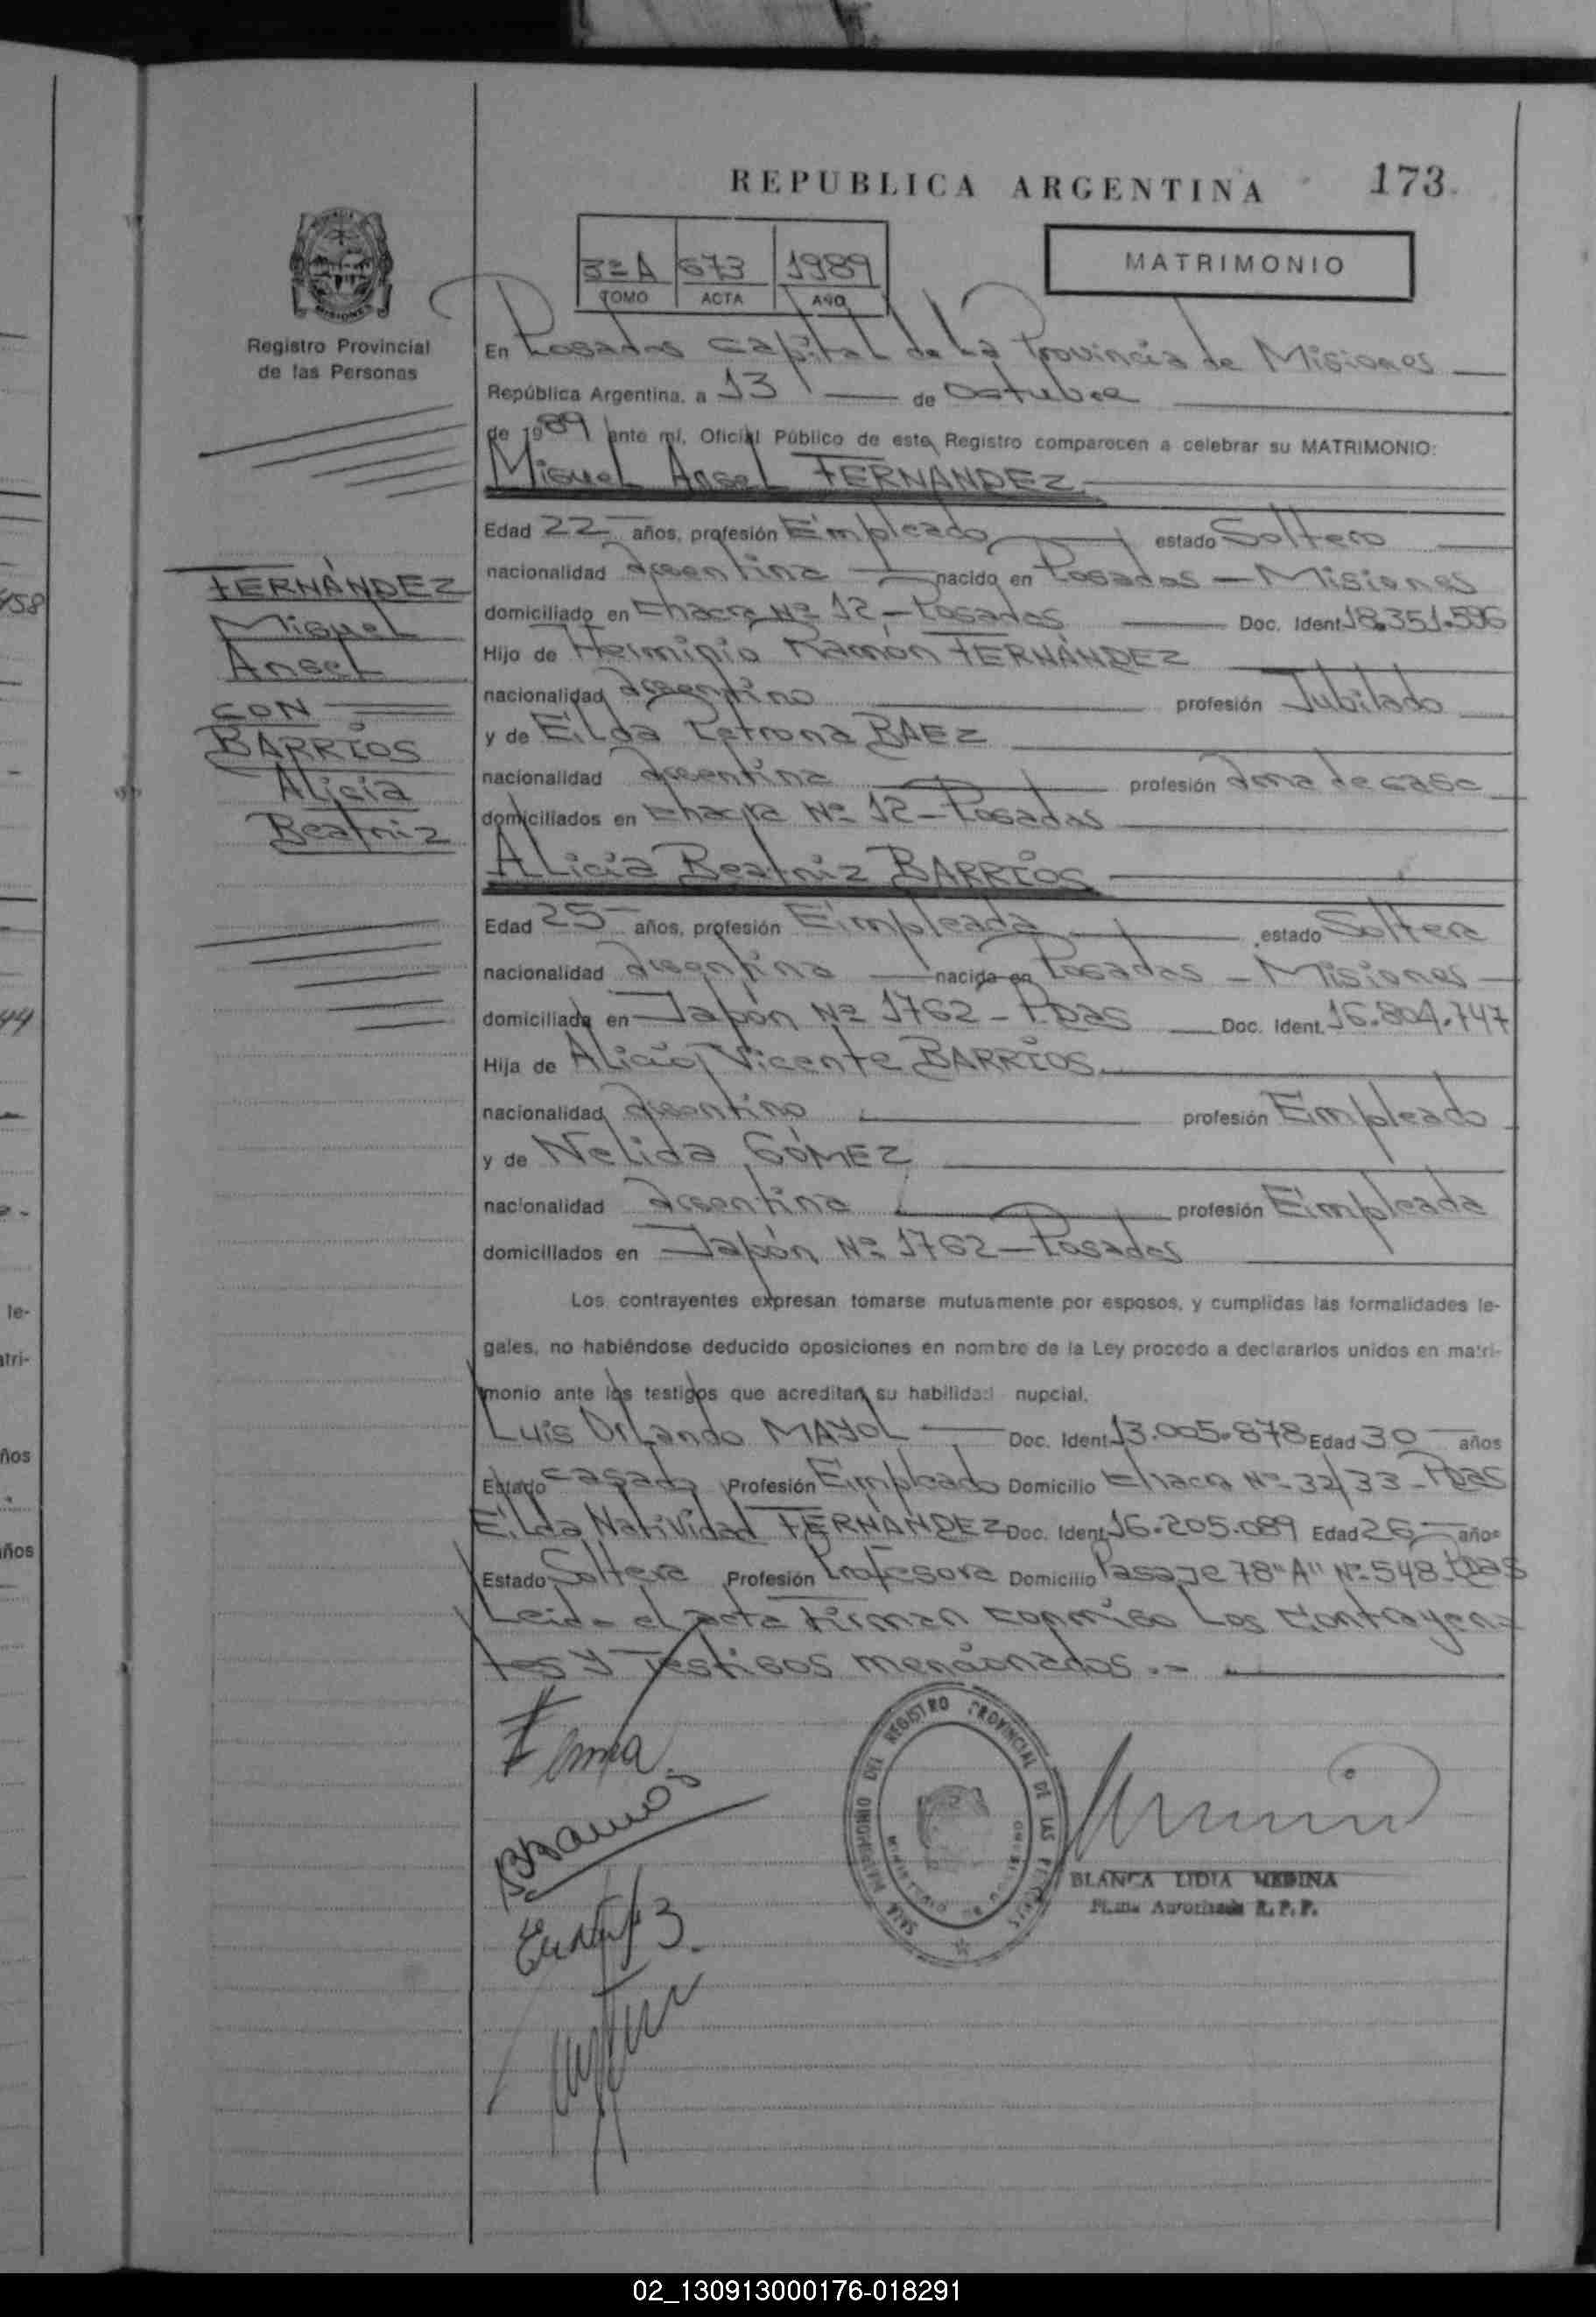 REPUBLICA ARGENTINA 173
3ºA 673 1989
TOMO ACTA AÑO
MATRIMONIO
MISIONES
Registro Provincial
de las Personas
En Posadas Capital de La Provincia de Misiones
República Argentina, a 13 de Octubre
de 1989 ante mí, Oficial Público de este Registro comparecen a celebrar su MATRIMONIO:
Miguel Angel FERNANDEZ
Edad 22 años, profesión Empleado estado Soltero
nacionalidad Argentina nacido en Posadas - Misiones
domiciliado en Chacra Nº 12 - Posadas Doc. Ident. 18.351.596
Hijo de Herminio Ramón FERNÁNDEZ
nacionalidad Argentino profesión Jubilado
y de Elda Petrona BAEZ
nacionalidad Argentina profesión Ama de casa
domiciliados en Chacra Nº 12 - Posadas
FERNÁNDEZ
Miguel
Angel
CON
BARRIOS
Alicia
Beatriz
Alicia Beatriz BARRIOS
Edad 25 años, profesión Empleada estado Soltera
nacionalidad Argentina nacida en Posadas - Misiones
domiciliada en Japón Nº 1762 - Pdas Doc. Ident. 16.804.747
Hija de Vicente BARRIOS
nacionalidad Argentino profesión Empleado
y de Nelida GÓMEZ
nacionalidad Argentina profesión Empleada
domiciliados en Japón Nº 1762 - Posadas
Los contrayentes expresan tomarse mutuamente por esposos, y cumplidas las formalidades le-
gales, no habiéndose deducido oposiciones en nombre de la Ley procedo a declararlos unidos en matri-
monio ante los testigos que acreditan su habilidad nupcial.
Luis Orlando MAYOL Doc. Ident. 13.005.878 Edad 30 años
Estado casado Profesión Empleado Domicilio Chacra Nº 32/33 - Pdas
Elda Natividad FERNANDEZ Doc. Ident. 16.205.089 Edad 26 años
Estado Soltera Profesión Profesora Domicilio Pasaje 78 "A" Nº 548 - Pdas
Leida el acta Firman conmigo Los Contrayen-
tes y Testigos mencionados.-
DEL REGISTRO PROVINCIAL DE LAS
BLANCA LIDIA MEDINA
Firma Autorizada R.P.P.
458
44
le-
atri-
ños
ños
02_130913000176-018291